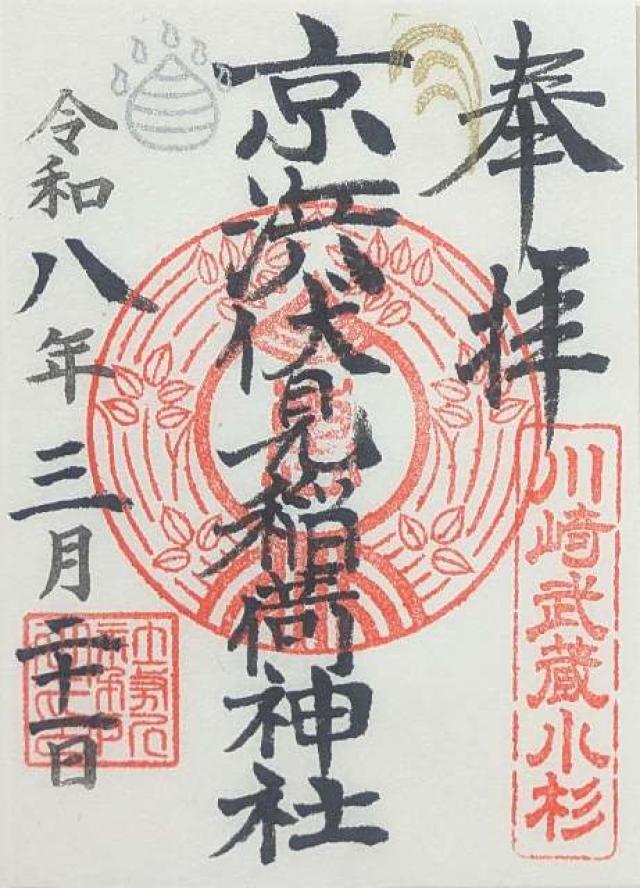 奉拝
川崎武蔵小杉
京濱伏見稲荷神社
令和八年三月二十一日